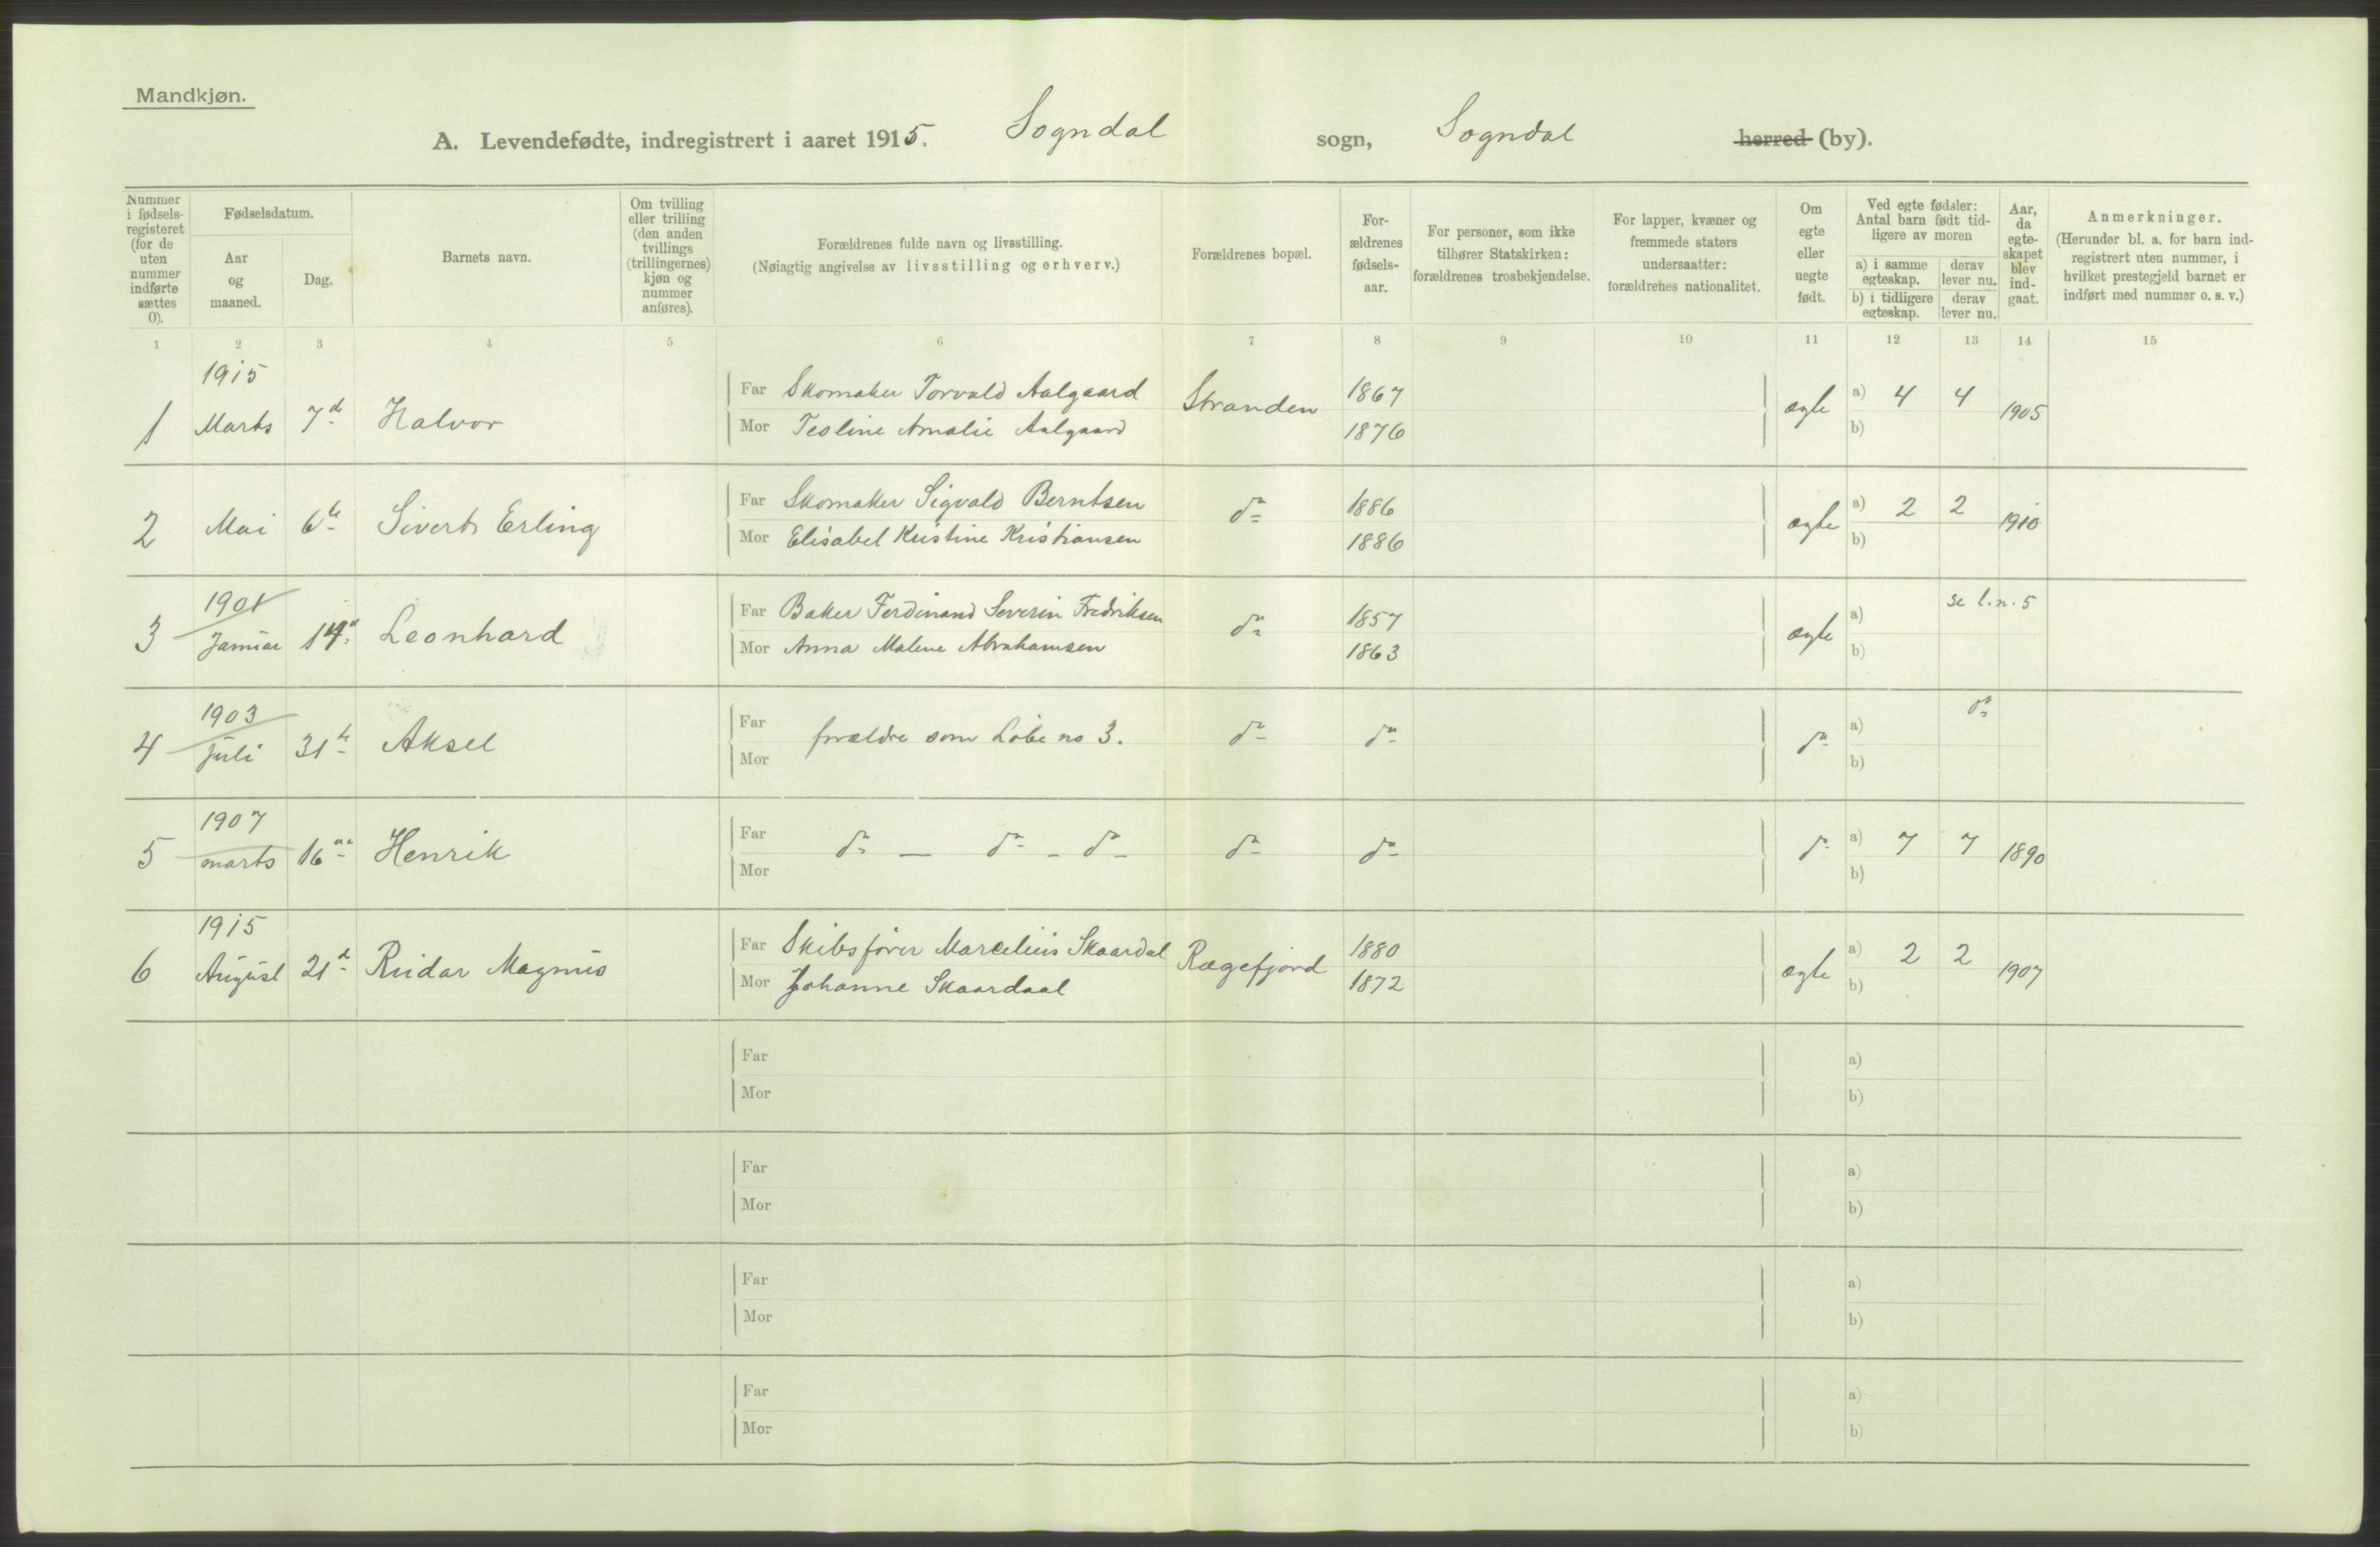 Mandkjøn.
A. Levendefødte, indregistrert i aaret 1915. Sogndal sogn, Sogndal herred (by).
Nummer i fødsels-registeret (for de uten nummer indførte sættes 0).
Fødselsdatum.
Aar og maaned.
Dag.
Barnets navn.
Om tvilling eller trilling (den anden tvillings (trillingernes) kjøn og nummer anføres).
Forældrenes fulde navn og livsstilling.
(Nøiagtig angivelse av livsstilling og erhverv.)
Forældrenes bopæl.
For-ældrenes fødsels-aar.
For personer, som ikke tilhører Statskirken: forældrenes trosbekjendelse.
For lapper, kvæner og fremmede staters undersaatter: forældrenes nationalitet.
Om egte eller uegte født.
Ved egte fødsler: Antal barn født tid-ligere av moren
a) i samme egteskap. derav lever nu.
b) i tidligere egteskap. derav lever nu.
Aar, da egte-skapet blev ind-gaat.
Anmerkninger.
(Herunder bl. a. for barn ind-registrert uten nummer, i hvilket prestegjeld barnet er indført med nummer o. s. v.)
1 2 3 4 5 6 7 8 9 10 11 12 13 14 15
1915
Far Skomaker Torvald Aalgaard 1867
1 Marts 7de Halvor Stranden ægte a) 4 4 1905
Mor Teoline Amalie Aalgaard 1876 b)
Far Skomaker Sigvald Berntsen 1886
2 Mai 6te Sivert Erling do ægte a) 2 2 1910
Mor Elisabet Kristine Kristiansen 1886 b)
1901 se l.n. 5
Far Baker Ferdinand Severin Fredriksen 1857
3 Januar 14de Leonhard do ægte a)
Mor Anna Malene Abrahamsen 1863 b)
1903 do
Far
4 Juli 31te Aksel forældre som Løbe no 3. do do do a)
Mor b)
1907
Far
5 marts 16de Henrik do — do - do - do do do a) 7 7 1890
Mor b)
1915
Far Skibsfører Marcelius Skaardal 1880
6 August 21de Reidar Magnus Rægefjord ægte a) 2 2 1907
Mor Johanne Skaardaal 1872 b)
Far a)
Mor b)
Far a)
Mor b)
Far a)
Mor b)
Far a)
Mor b)